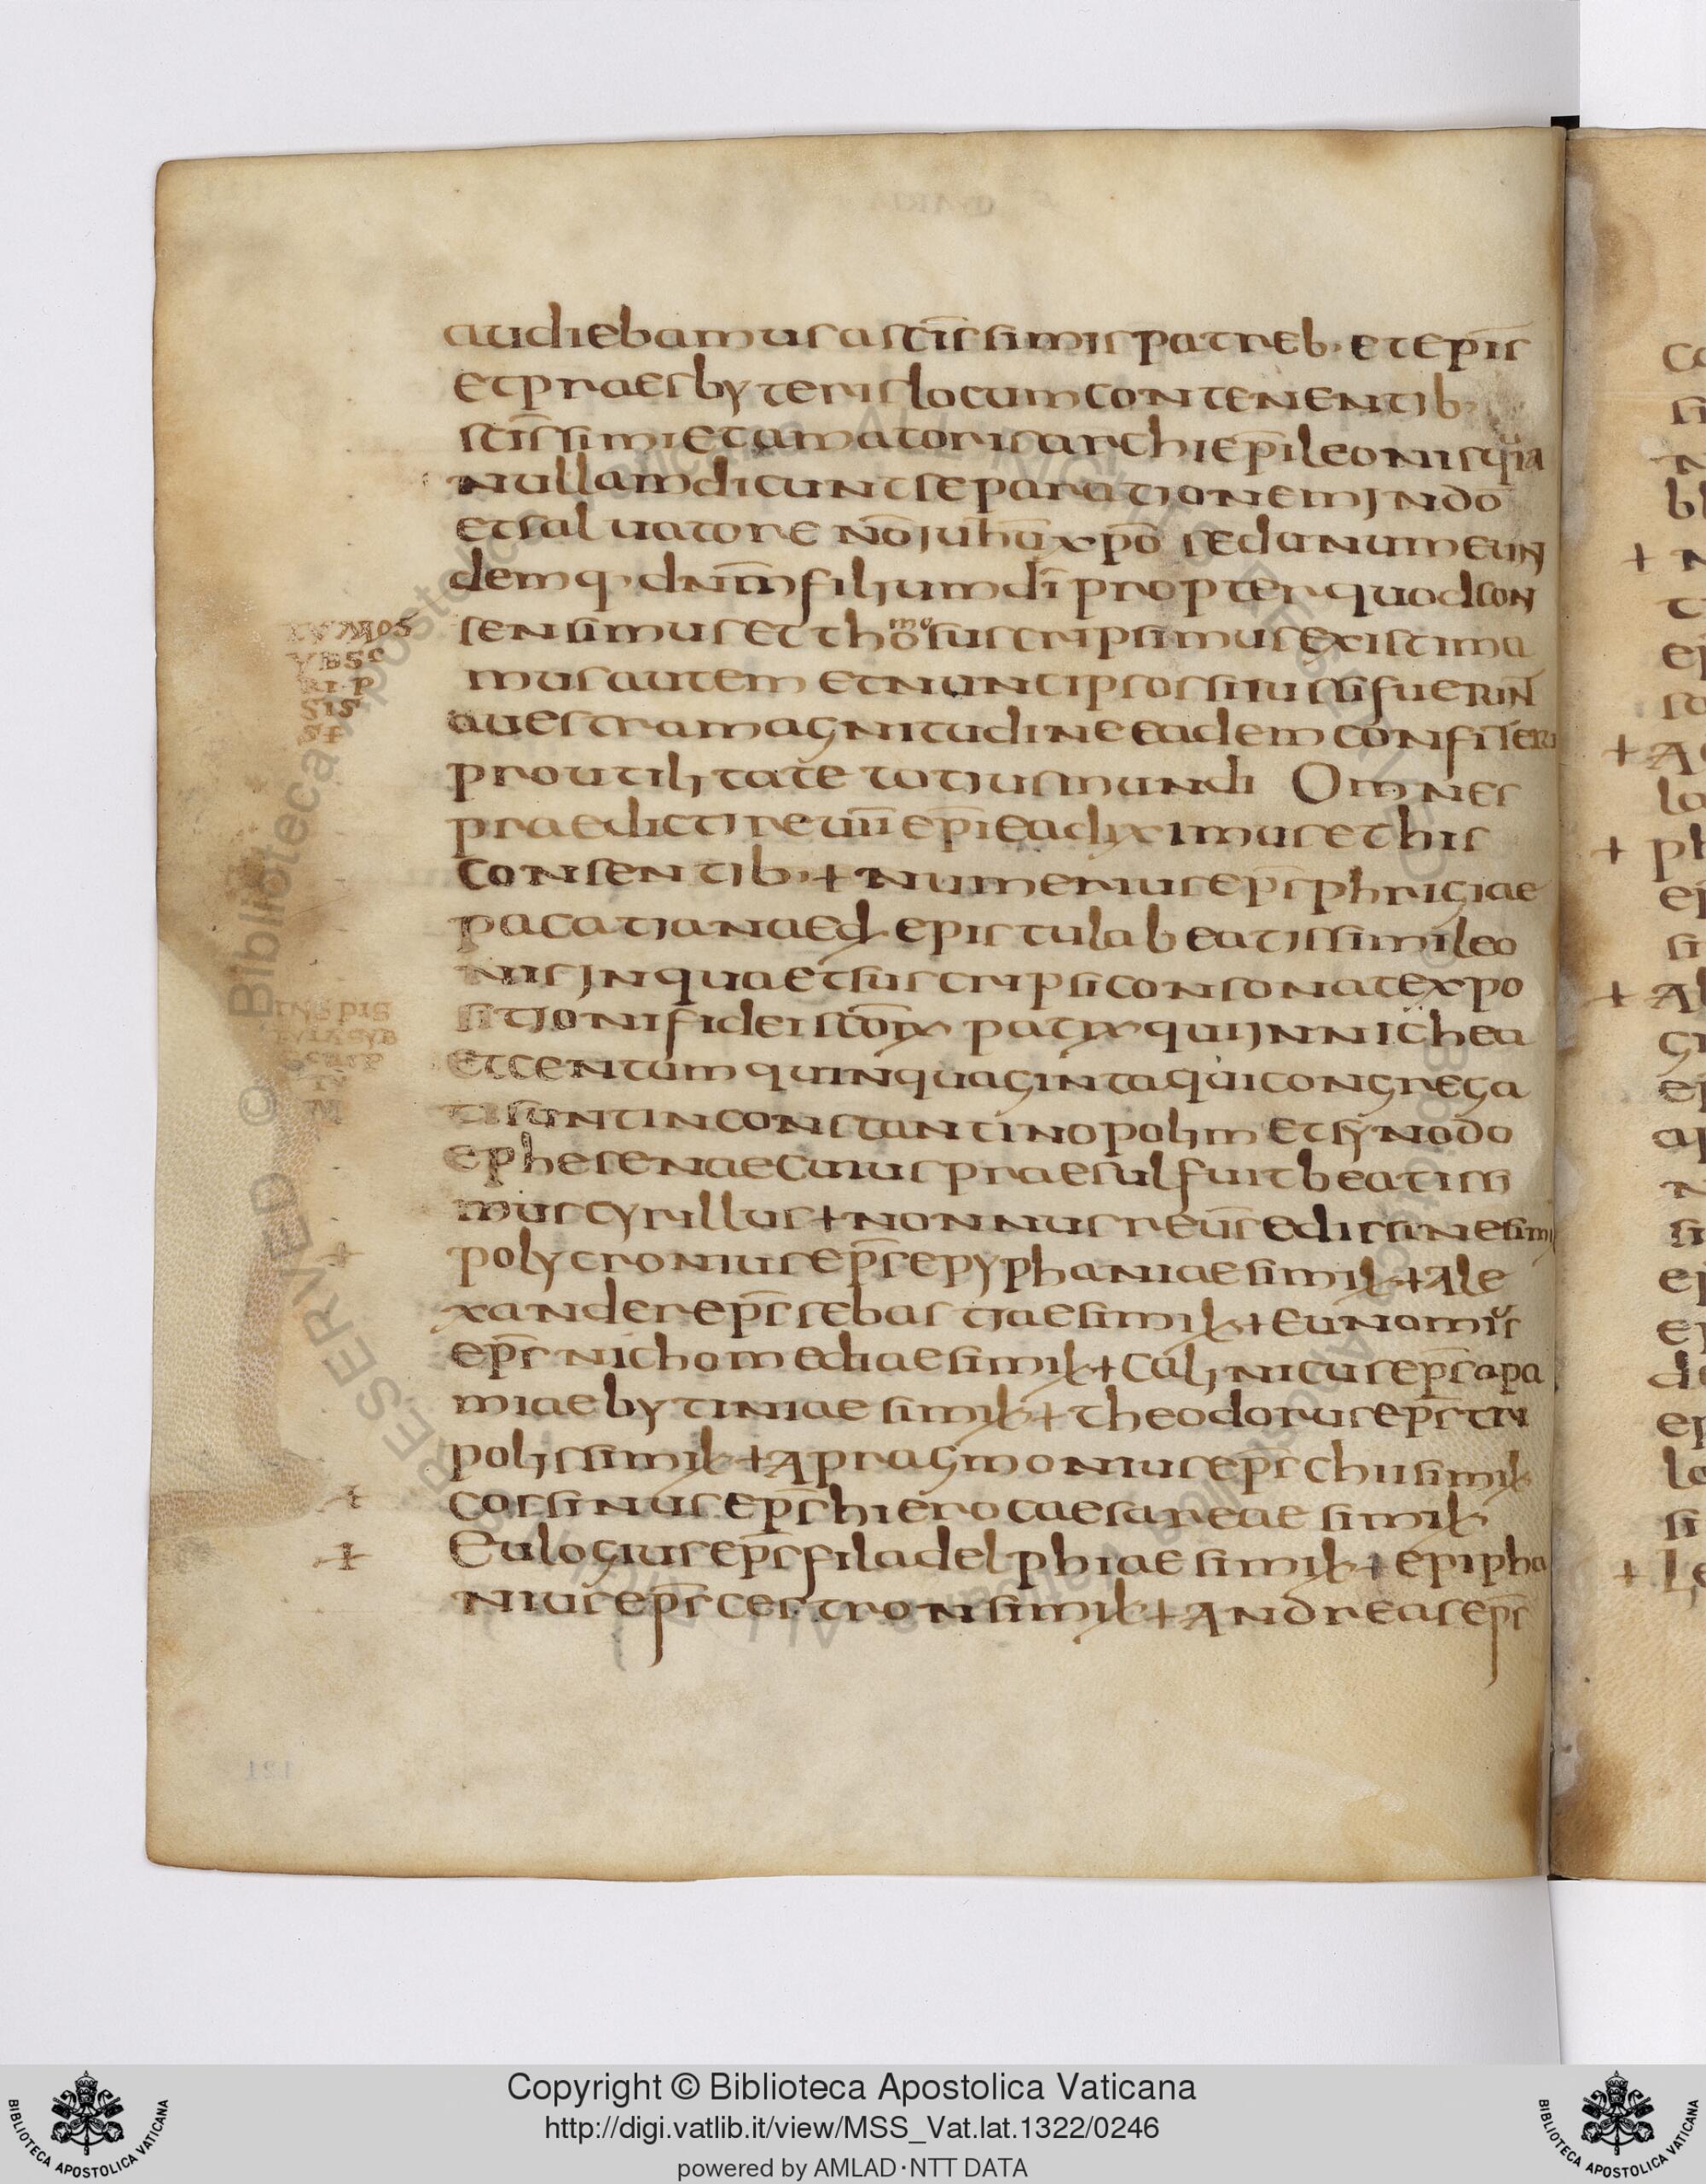 audiebamus a sc̄issimis patreb· et ep̄is
et praesbyteris locum contenentib·
sc̄issimi et amatoris archiep̄i leonis quia
nullam dicunt separationem in dō
et saluatore nō ihū xp̄o sed unum eun
demq· dn̄m filium dī propter quod con
sensimus et thōmo suscripsimus existima
mus autem et nunc ipsos si iussi fuerin̄
a uestra magnitudine eadem confiteri
pro utilitate totius mundi Omnes
praedicti reuū ep̄i ea diximus et his
consentib· + numerius ep̄s phrigiae
pacatianae epistula beatissimi leo
nis in qua et suscripsi consonat expo
sitioni fidei sc̄orum patrum qui in nichea
et centum quinquaginta qui congrega
ti sunt in constantinopolim et synodo
ephesenae cuius praesul fuit beatissi
mus cyrillus + nonnus reūs edissane simi
polycronius ep̄s epyphaniae simil + Ale
xander ep̄s sebastiae simil + Eunomius
ep̄s nichomediae simil + Calinicus ep̄s apa
miae bytiniae simil + theodorus ep̄s tri
polis simil + Apragmonius ep̄s chii simil
cossinus ep̄s hiero caesareae simil
Eulogius ep̄s filadelphiae simil + epipha
nius ep̄s cestron simil + Andreas ep̄s
Copyright © Biblioteca Apostolica Vaticana
http://digi.vatlib.it/view/MSS_Vat.lat.1322/0246
powered by AMLAD·NTT DATA
BIBLIOTECA APOSTOLICA VATICANA
BIBLIOTECA APOSTOLICA VATICANA